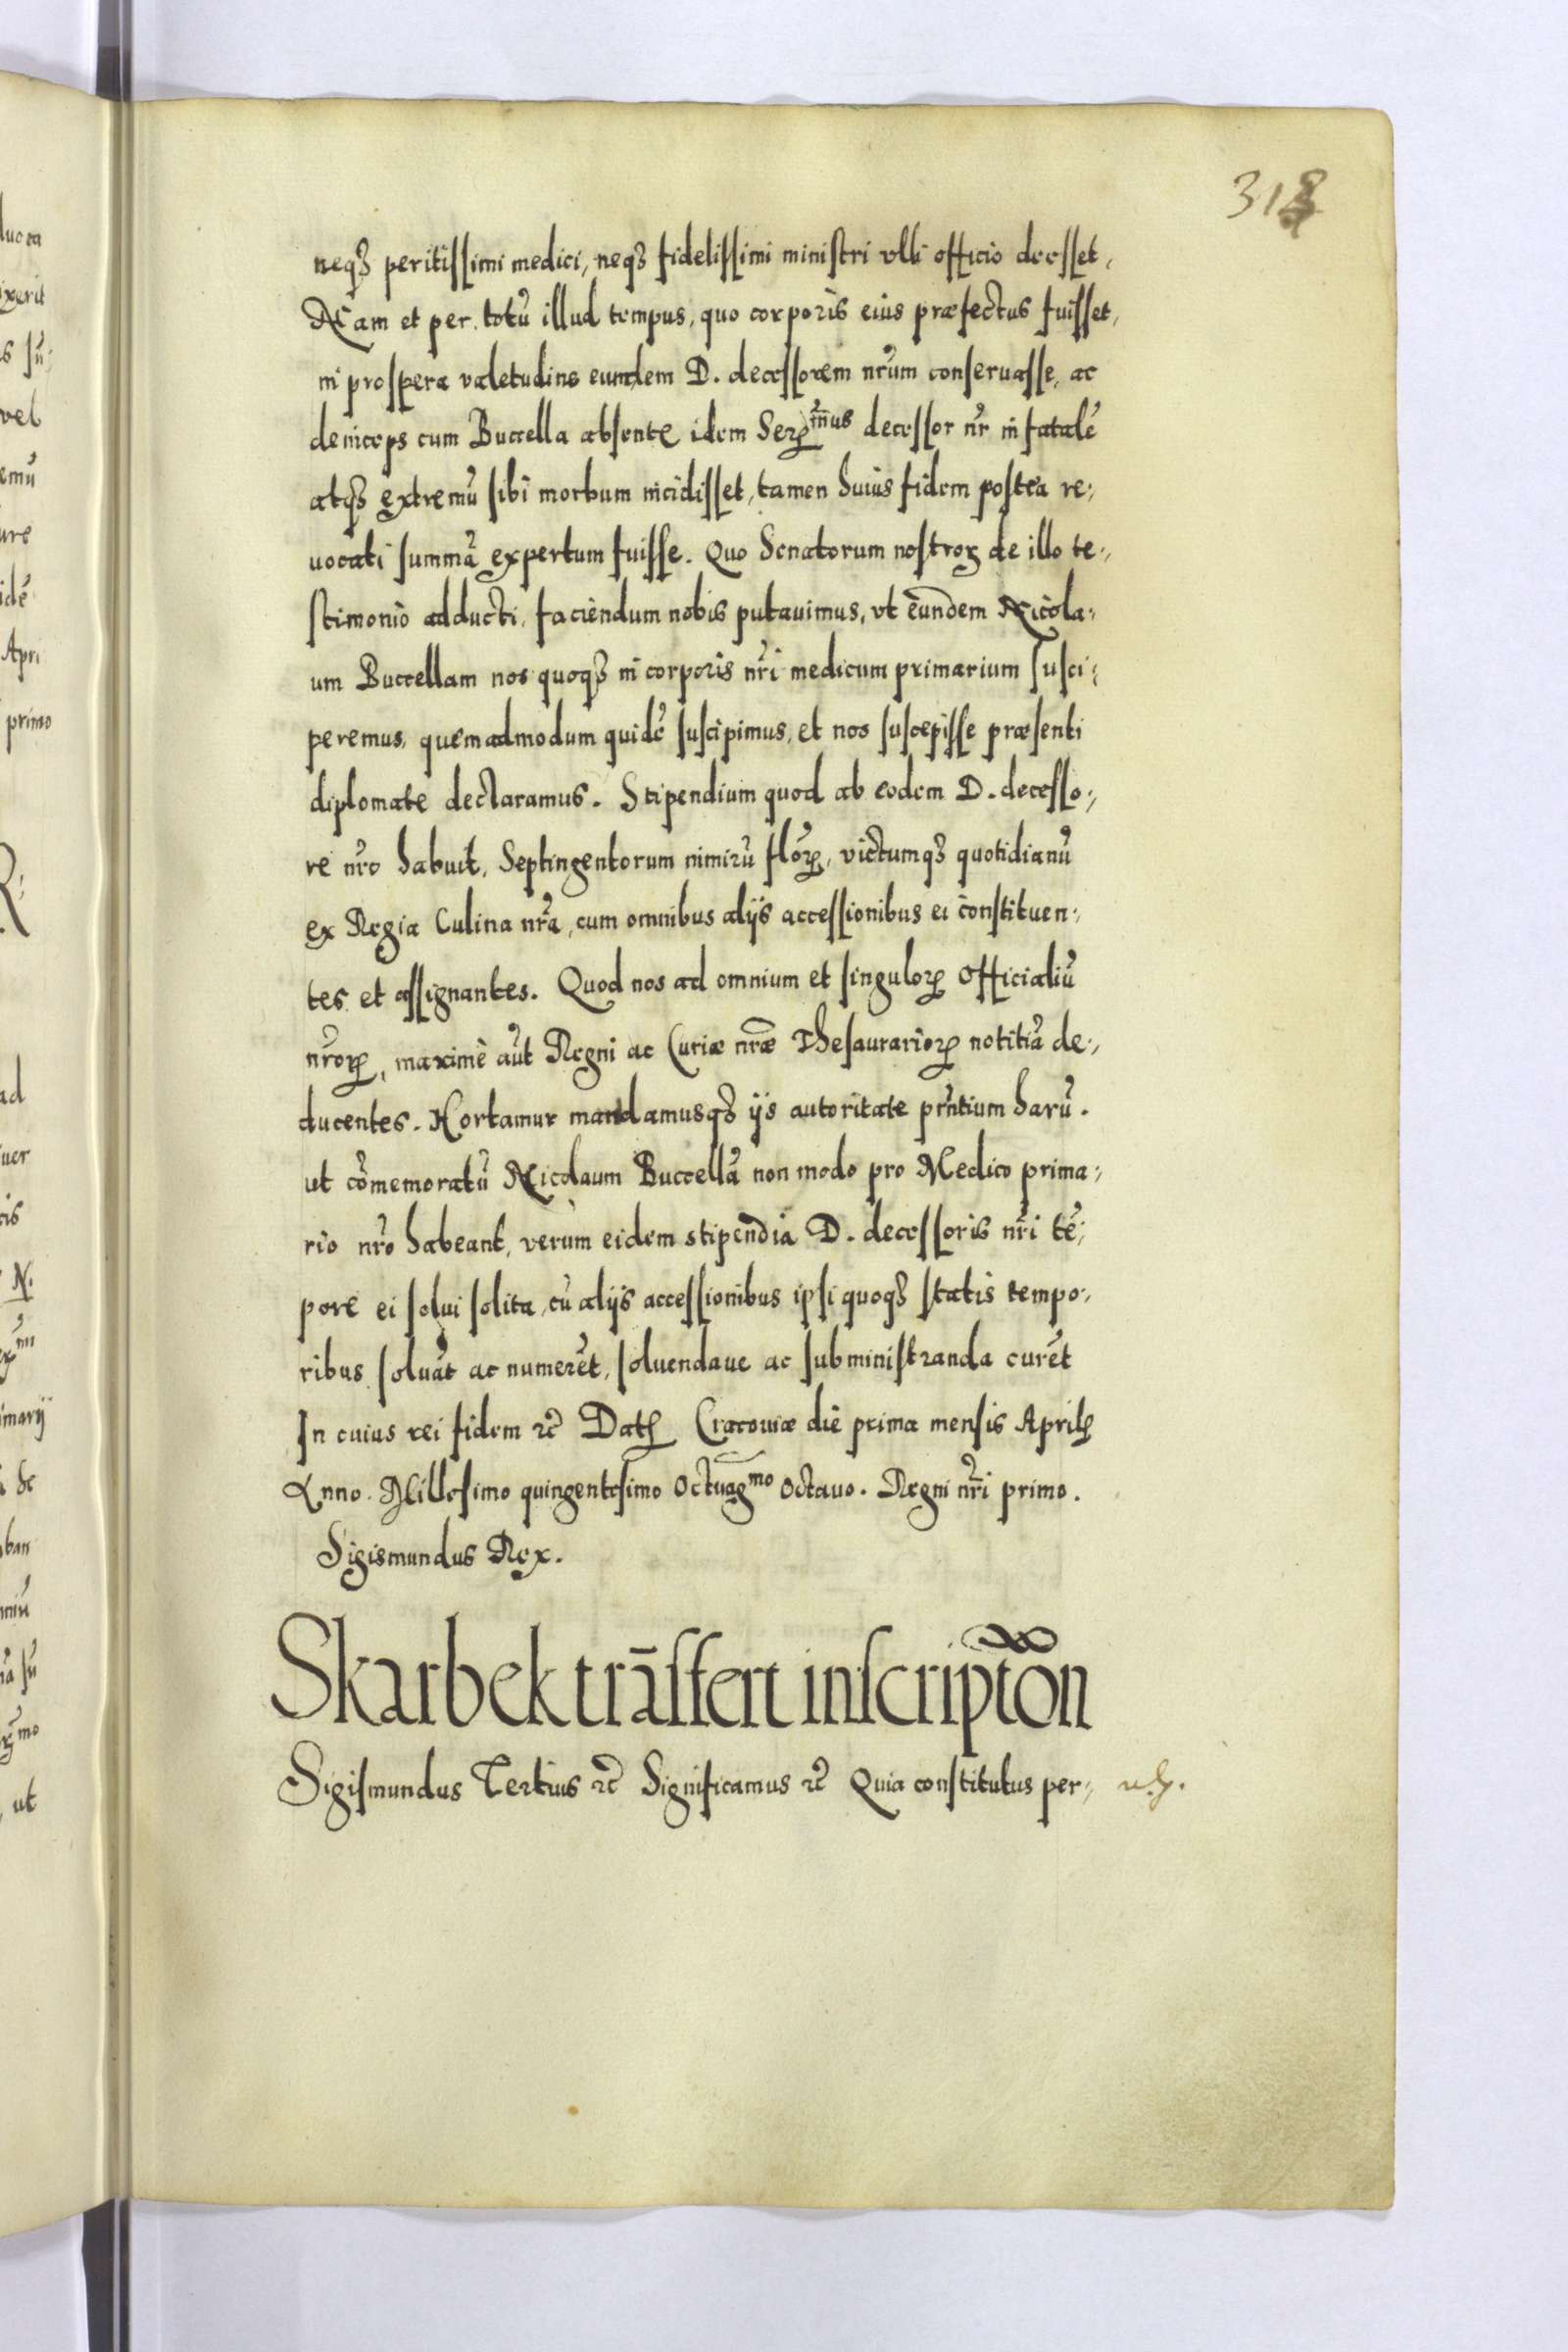 318
neqȝ peritissimi medici, neqȝ fidelissimi ministri ulli officio deesset,
Nam et per totũ illud tempus, quo corporis eius præfectus fuisset,
in prospera valetudine eundem D. decessorem nr̃um conservasse, ac
deinceps cum Buccella absente idem Serᵐ̃ᵘˢ decessor nr̃ in fatalẽ
atqȝ extremũ sibi morbum incidisset, tamen huius fidem postea re-
uocati summã expertum fuisse. Quo Senatorum nostroꝝ de illo te-
stimonio adducti, faciendum nobis putauimus, vt eundem Nicola-
um Buccellam nos quoqȝ in corporis nr̃i medicum primarium susci-
peremus, quemadmodum quidẽ suscipimus, et nos suscepisse præsenti
diplomate declaramus. Stipendium quod ab eodem D. decesso-
re nr̃o habuit, Septingentorum nimirũ floꝝ, victumqȝ quotidianũ
ex Regia Culina nr̃a, cum omnibus alijs accessionibus ei constituen-
tes et assignantes. Quod nos ad omnium et singuloꝝ Officialiũ
nr̃oꝝ, maximè aũt Regni ac Curiæ nr̃æ Thesaurarioꝝ notitiã de-
ducentes. Hortamur mandamusqȝ ijs autoritate pr̃ntium harũ.
ut cõmemoratũ Nicolaum Buccellã non modo pro Medico prima-
rio nr̃o habeant, verùm eidem stipendia D. decessoris nr̃i tẽ-
pore ei solui solita, cũ alijs accessionibus ipsi quoqȝ statis tempo-
ribus soluãt ac numerẽt, soluendaue ac subministranda curẽt
In cuius rei fidem ⁊c̃ Datꝭ Cracouiæ die prima mensis Aprilꝭ
Anno Millesimo quingentesimo Octuagᵐᵒ Octauo. Regni nr̃i primo.
Sigismundus Rex.
Skarbek trãsfert inscriptõn
Sigismundus Tertius ⁊c̃ Significamus ⁊c̃ Quia constitutus per-